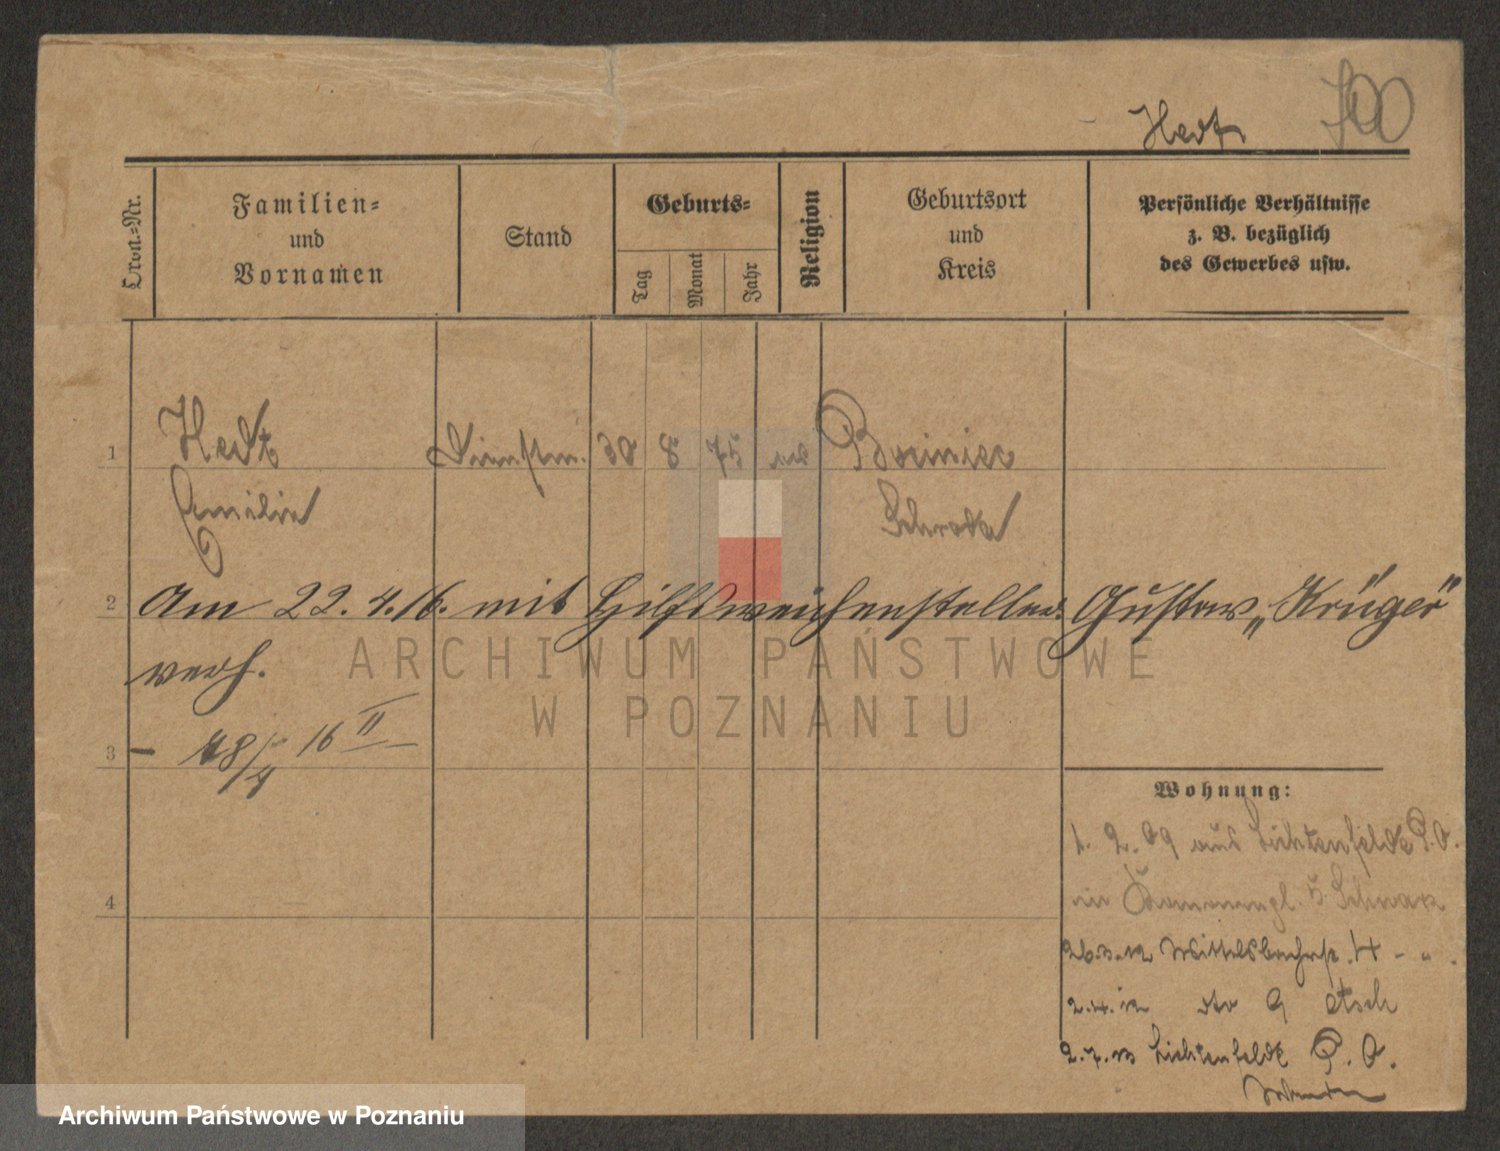 Hedt 700
Ordn.-Nr.
Familien-
und
Vornamen
Stand
Geburts-
Tag
Monat
Jahr
Religion
Geburtsort
und
Kreis
Persönliche Verhältnisse
z. B. bezüglich
des Gewerbes usw.
1 Hedt Dienstm. 30 8 75
Emilie Schroda
2 Am 22.4.16. mit Hilfsweichensteller Gustav „Krüger"
verh.
3 - 18/4 16 II -
Wohnung:
1. 2. 09 aus Lichtenfelde P.O.
4
26.3.12 Wittelsbacherstr. 4 - " .
2.4.12 dto 9
2.7.13 Lichtenfelde P.O.
ARCHIWUM PAŃSTWOWE
W POZNANIU
Archiwum Państwowe w Poznaniu